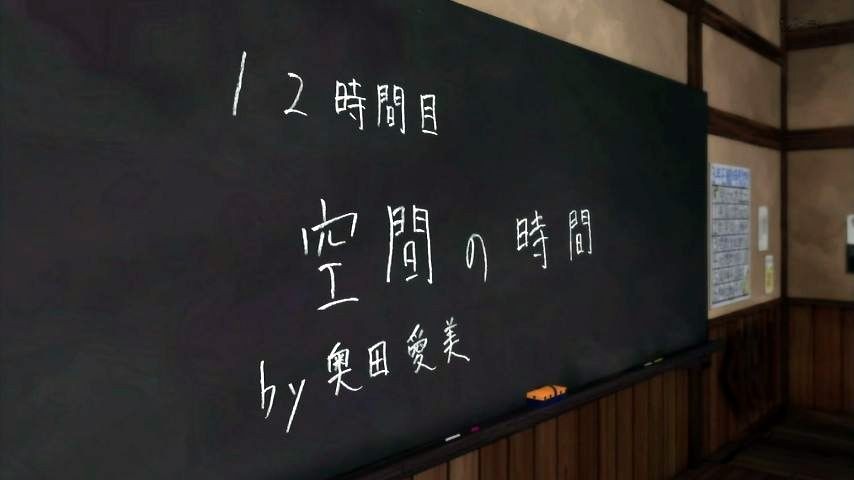 12時間目
空間の時間
by奥田愛美